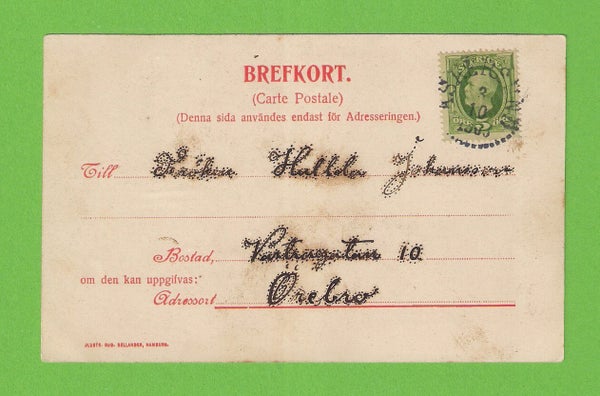 SVERIGE
3
10
1903
BREFKORT.
(Carte Postale)
(Denna sida användes endast för Adresseringen.)
Till Fröken Hulda Johansson
Bostad, 10
om den kan uppgifvas:
Adressort Örebro